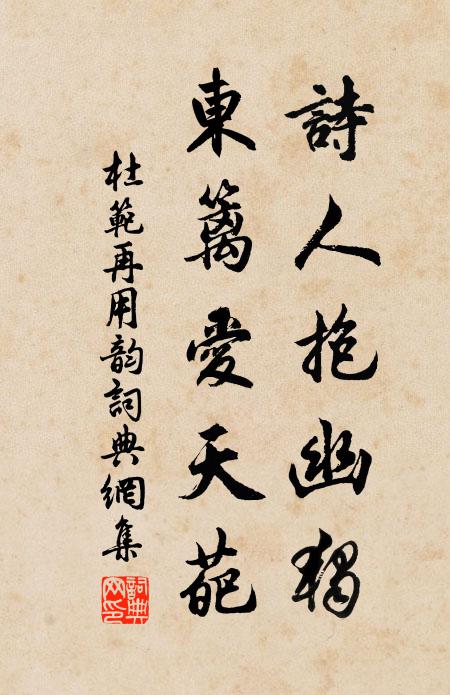 詩人抱幽獨
東籬愛天葩
杜範再用韵詞典網集
詞典網印